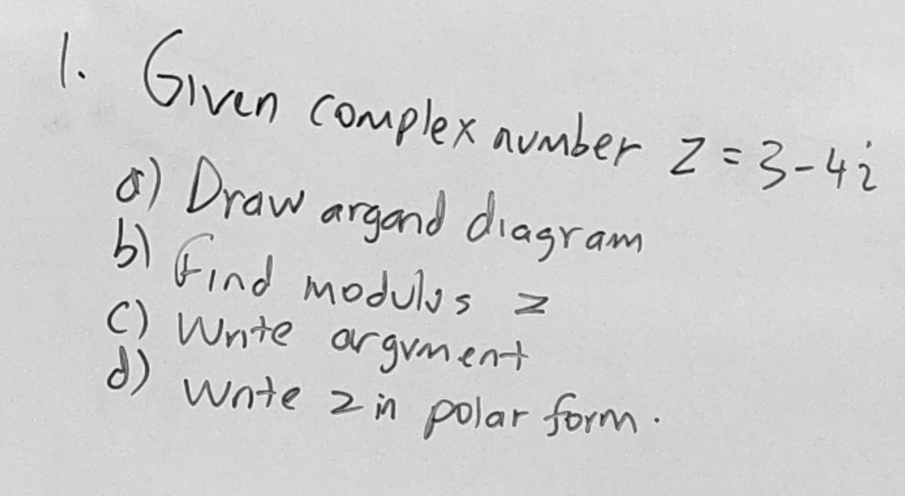 1. Given complex number z = 3-4i
a) Draw argand diagram
b) Find modulus z
c) Write argument
d) Write z in polar form.